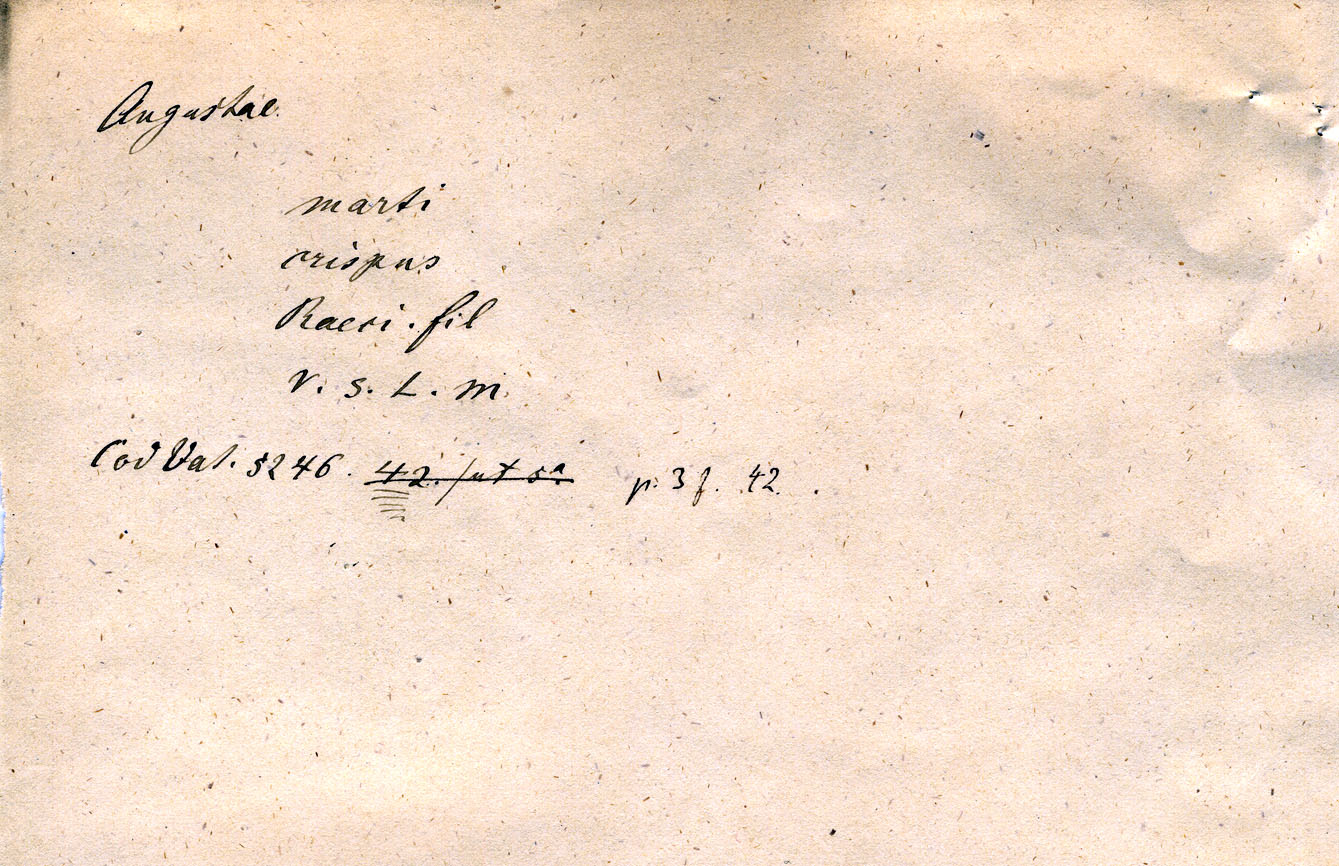 Augustae
marti
crispus
Raeci. fil
V. s. L. m
Cod Vat. 5246. 42. /ut sª p. 3 f. 42.